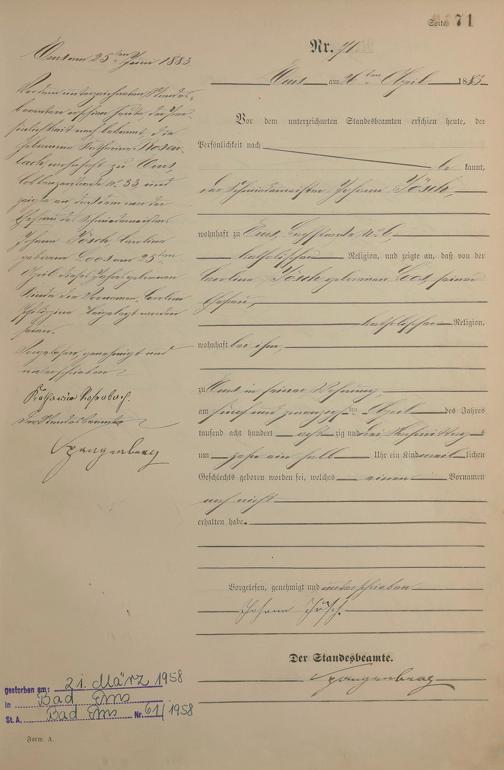 Seite 71
Nr. 71
Ems am ten April 1883.
Vor dem unterzeichneten Standesbeamten erschien heute, der
Persönlichkeit nach
be kannt,
der Schmiedemeister Johann Jösch,
wohnhaft zu Ems,
katholischer Religion, und zeigte an, daß von der
Carolina Jösch geborenen Loos seiner
Ehefrau,
katholischer Religion,
wohnhaft bei ihm,
zu Ems in seiner Wohnung,
am fünf und zwanzigsten April des Jahres
tausend acht hundert acht zig und drei Vormittags
um zehn ein halb Uhr ein Kind weib lichen
Geschlechts geboren worden sei, welches einen Vornamen
noch nicht
erhalten habe.
Vorgelesen, genehmigt und unterschrieben
Johann Jösch.
Der Standesbeamte.
Spangenberg
Ems am 25ten Juni 1883
Vor dem unterzeichneten Standes-
beamten erschien heute, der Per-
sönlichkeit nach bekannt, die
Katharina
wohnhaft zu Ems,
No. 33 und
zeigte an, daß dem von der
Ehefrau des Schmiedemeisters
Johann Jösch, Carolina
geborene Loos am 25ten
April dieses Jahres geborenen
Kinde die Vornamen Carolina
beigelegt worden
seien.
Vorgelesen, genehmigt und
unterschrieben
Katharina Rosenbach.
Der Standesbeamte
Spangenberg
gestorben am: 21. März 1958
in Bad Ems
St. A. Bad Ems Nr. 61/1958
Form. A.